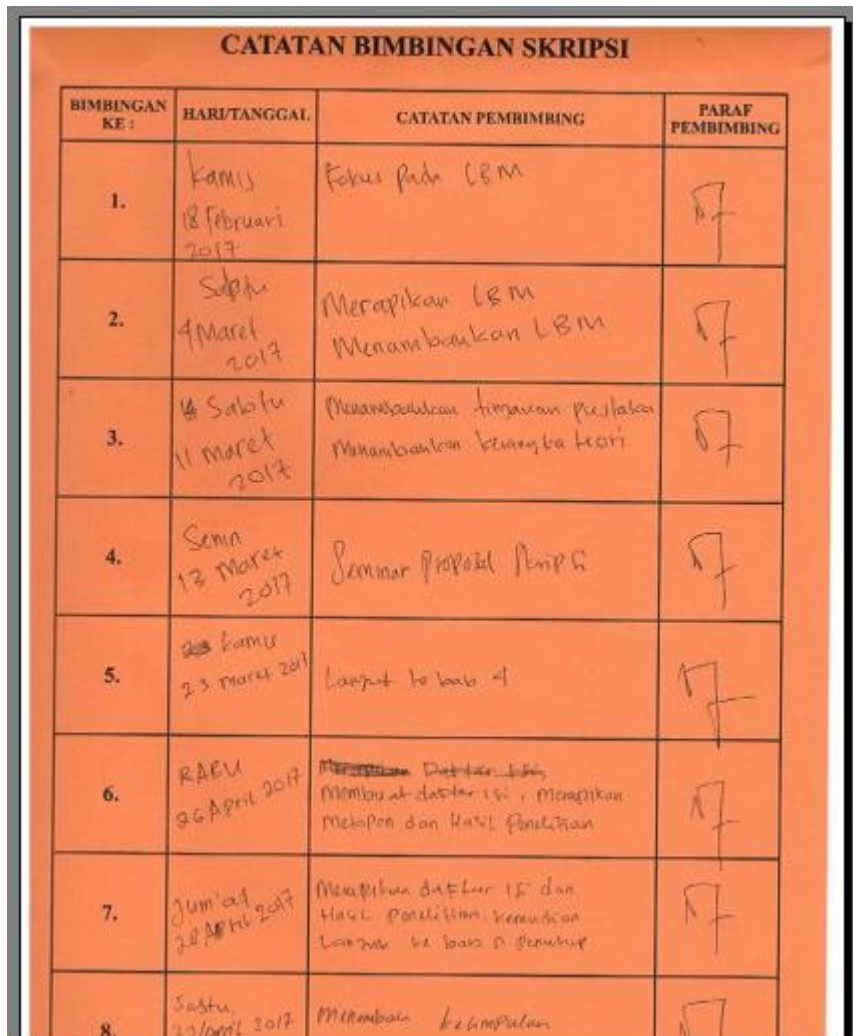 CATATAN BIMBINGAN SKRIPSI
BIMBINGAN KE :
HARI/TANGGAL
CATATAN PEMBIMBING
PARAF PEMBIMBING
1.
Kamis
18 Februari
2017
Fokus pada LBM
2.
Sabtu
4 Maret
2017
Merapikan LBM
Menambahkan LBM
3.
Sabtu
11 Maret
2017
Menambahkan tinjauan pustaka
Menambahkan kerangka teori
4.
Senin
13 Maret
2017
Seminar Proposal Skripsi
5.
Kamis
23 Maret 2017
Lanjut ke bab 4
6.
RABU
26 April 2017
Daftar Isi,
Membuat daftar isi, merapikan
metopen dan Hasil Penelitian
7.
Jum'at
28 April 2017
Merapikan daftar isi dan
Hasil Penelitian kemudian
Lanjut ke bab 5 penutup
8.
Sabtu,
29 April 2017
Menambah kesimpulan